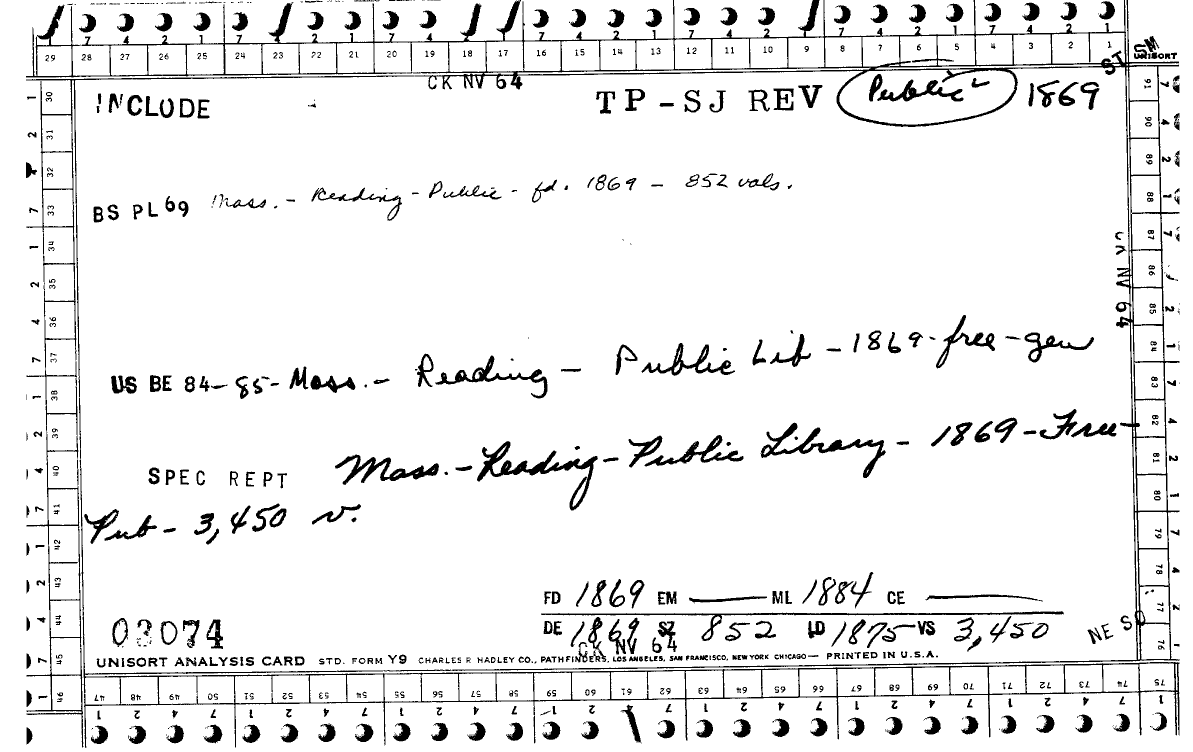 7 4 2 1 7 4 2 1 7 4 2 1 7 4 2 1 7 4 2 1
29 28 27 26 25 24 23 22 21 20 19 18 17 16 15 14 13 12 11 10 9 8 7 6 5 4 3 2 1
UNISORT
CK NV 64
INCLUDE TP-SJ REV Public 1869
BS PL 69 Mass. - Reading - Public - fd. 1869 - 852 vols.
CK NV 64
US BE 84-85- Mass. - Reading - Public Lib - 1869-free-gen
SPEC REPT Mass. - Reading - Public Library - 1869 - Free -
Pub - 3,450 v.
FD 1869 EM — ML 1884 CE —
03074 DE 1869 SZ 852 LD 1875 VS 3,450
CK NV 64
NE
UNISORT ANALYSIS CARD STD. FORM Y9 CHARLES R HADLEY CO., PATHFINDERS, LOS ANGELES, SAN FRANCISCO, NEW YORK CHICAGO — PRINTED IN U.S.A.
30 31 32 33 34 35 36 37 38 39 40 41 42 43 44 45 46
91 90 89 88 87 86 85 84 83 82 81 80 79 78 77 76
47 48 49 50 51 52 53 54 55 56 57 58 59 60 61 62 63 64 65 66 67 68 69 70 71 72 73 74 75